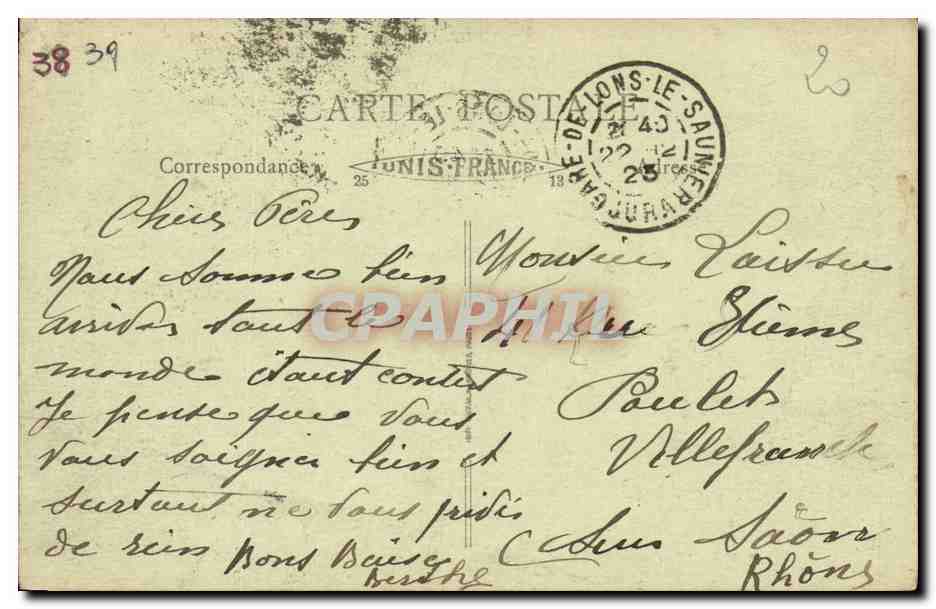 38 39
20
CARTE POSTALE
Correspondance
UNIS-FRANCE
25 13
Adresse
GARE-DE-LONS-LE-SAUNIER
JURA
21 40
22 12
23
Chers Pères
Nous somme bien
arrivés tout le
monde étant content
Je pense que vous
vous soigner bien et
surtout ne vous
de rien
Bons Baiser
Berthe
Monsieur Laissu
41 Rue Etienne
Poulet
Villefranche
Sur Saône
Rhône
CPAPHIL